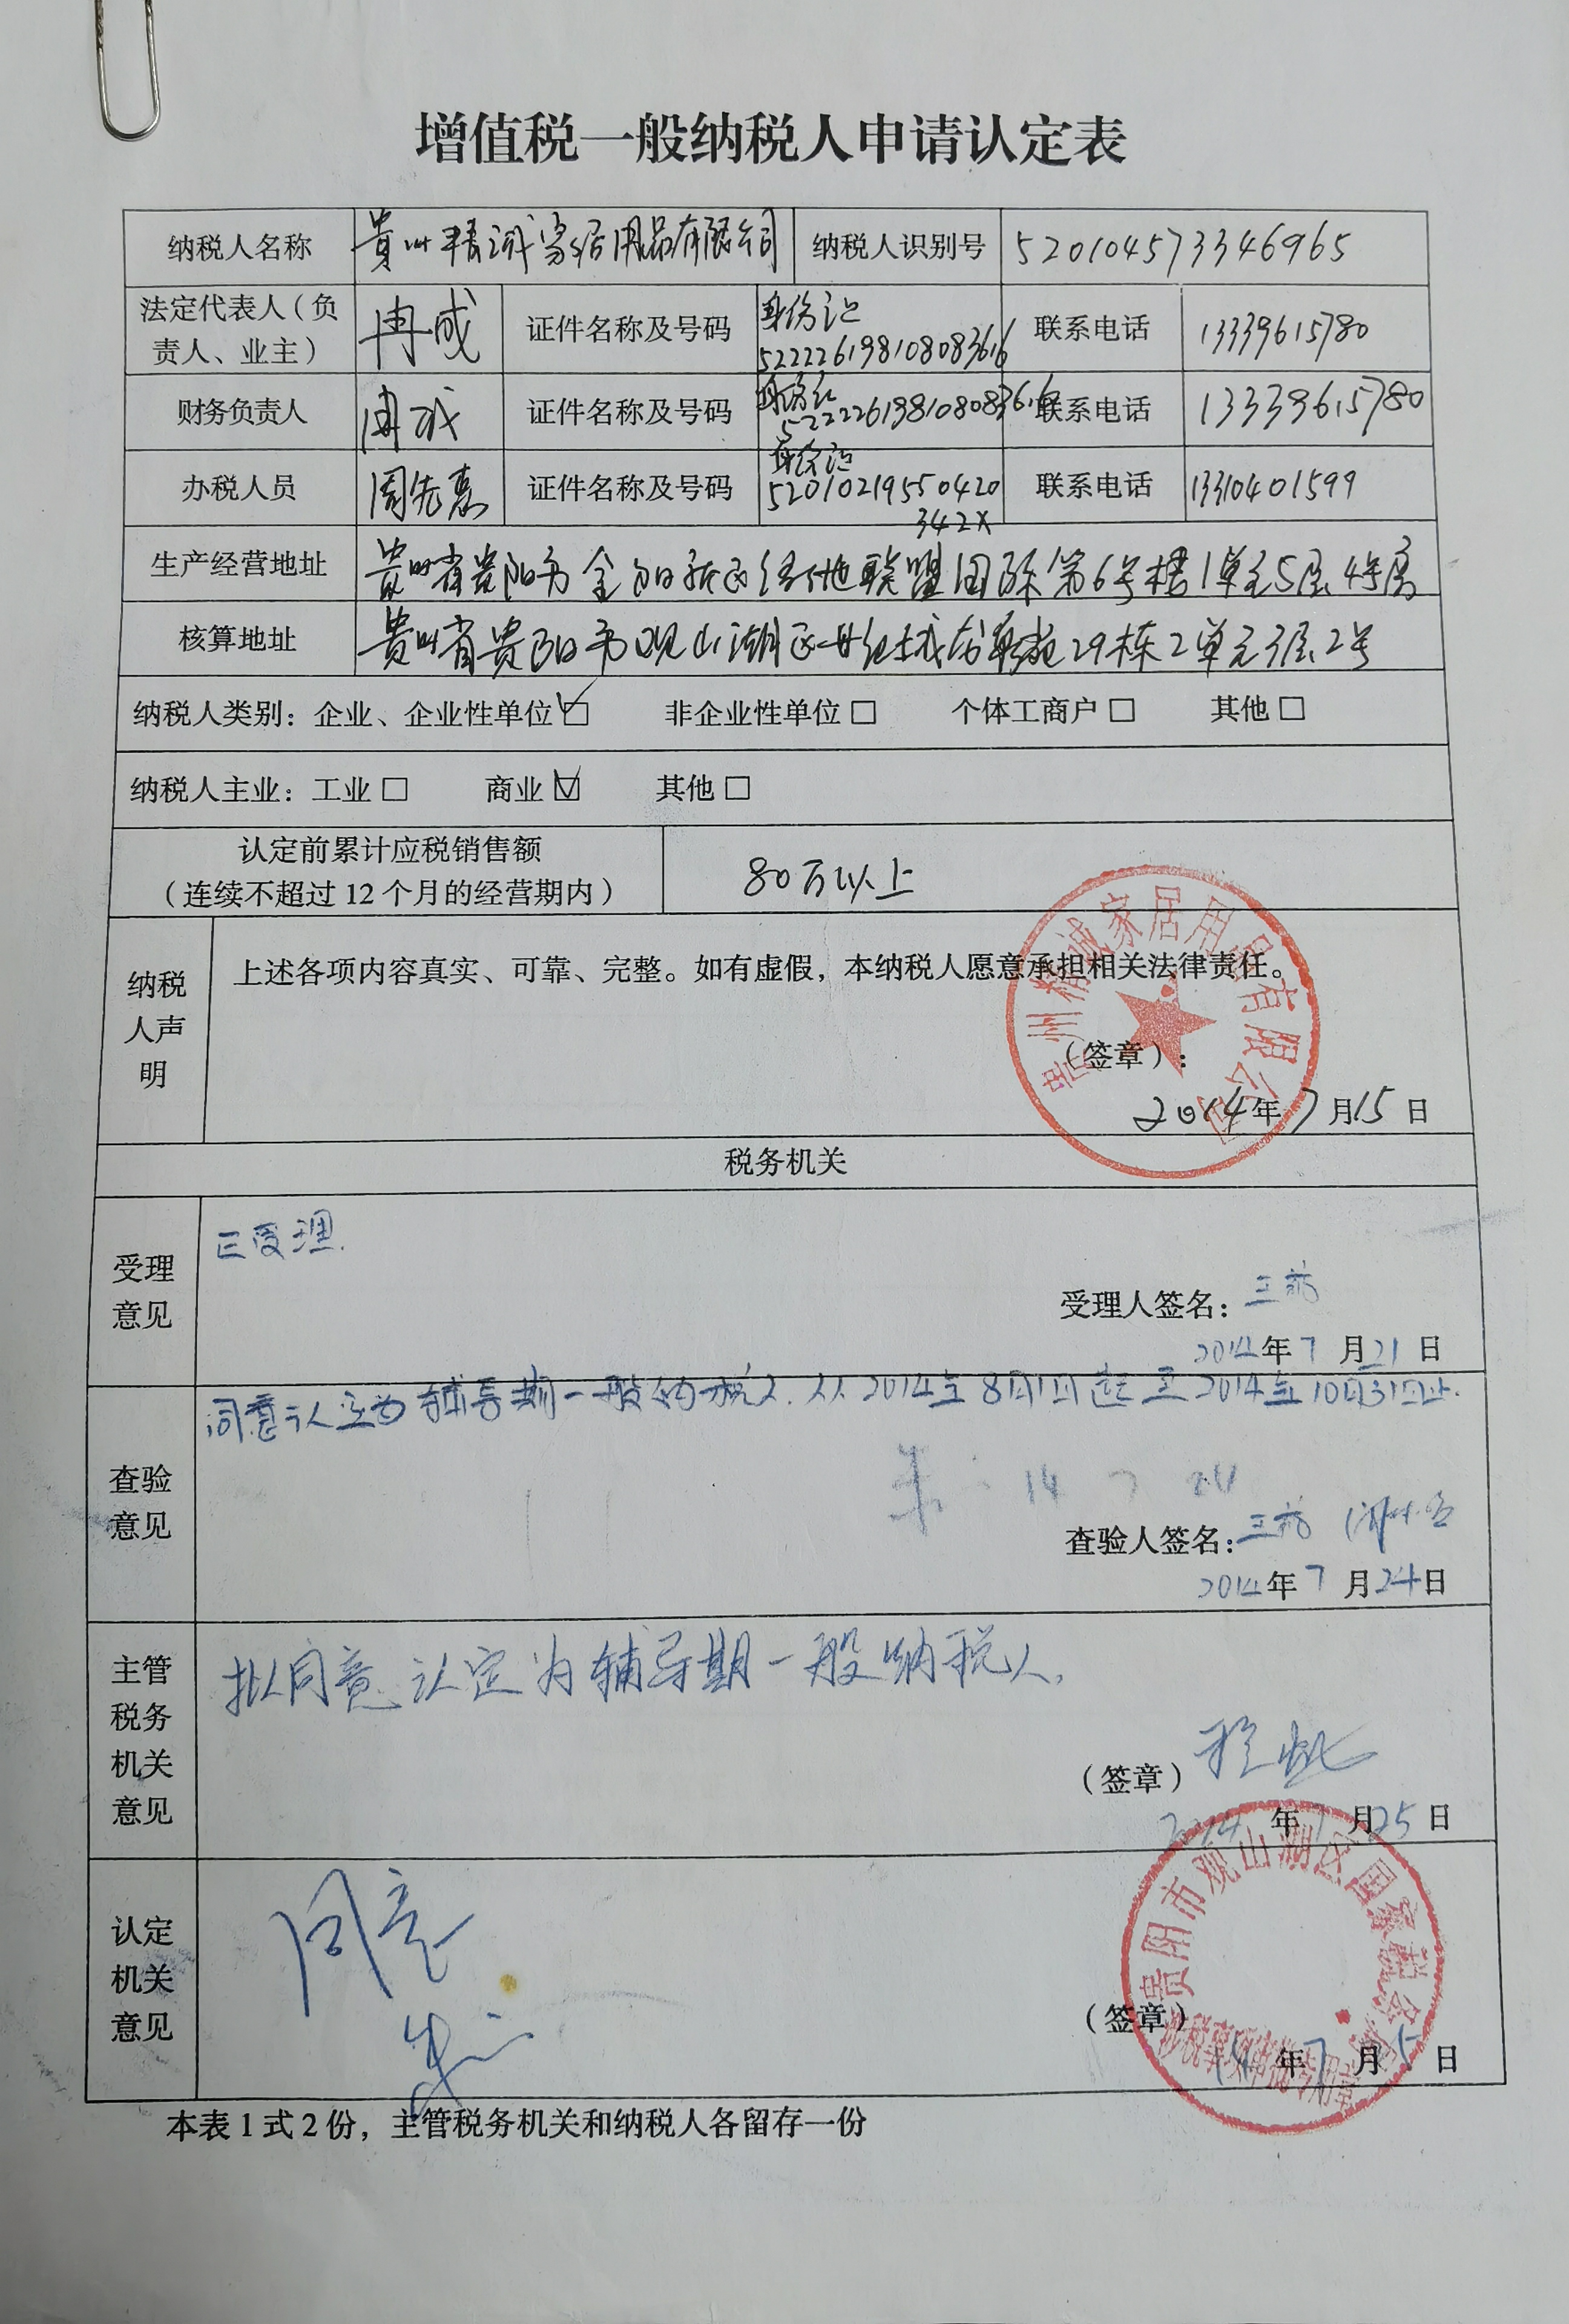 增值税一般纳税人申请认定表
纳税人名称 贵州精诚家居用品有限公司 纳税人识别号 520104573346965
法定代表人（负责人、业主） 冉成 证件名称及号码 身份证 522226198108083616 联系电话 13339615780
财务负责人 冉成 证件名称及号码 身份证 522226198108083616 联系电话 13339615780
办税人员 周先惠 证件名称及号码 身份证 52010219550420342X 联系电话 13310401599
生产经营地址 贵州省贵阳市金阳新区绿地联盟国际第6号楼1单元5层4号房
核算地址 贵州省贵阳市观山湖区世纪城龙 苑29栋2单元3层2号
纳税人类别：企业、企业性单位☑ 非企业性单位□ 个体工商户□ 其他□
纳税人主业：工业□ 商业☑ 其他□
认定前累计应税销售额
（连续不超过12个月的经营期内） 80万以上
纳税人声明
上述各项内容真实、可靠、完整。如有虚假，本纳税人愿意承担相关法律责任。
贵州精诚家居用品有限公司
（签章）：
2014年7月15日
税务机关
受理意见
已受理.
受理人签名：
2014年7月21日
查验意见
同意认定为辅导期一般纳税人.从2014年8月1日起至2014年10月31日止.
14 7 24
查验人签名：
2014年7月24日
主管税务机关意见
拟同意认定为辅导期一般纳税人.
（签章）
2014年7月25日
认定机关意见
同意
贵阳市观山湖区国家税务局
涉税事项审批专用章
（签章）
14年7月 5日
本表1式2份，主管税务机关和纳税人各留存一份